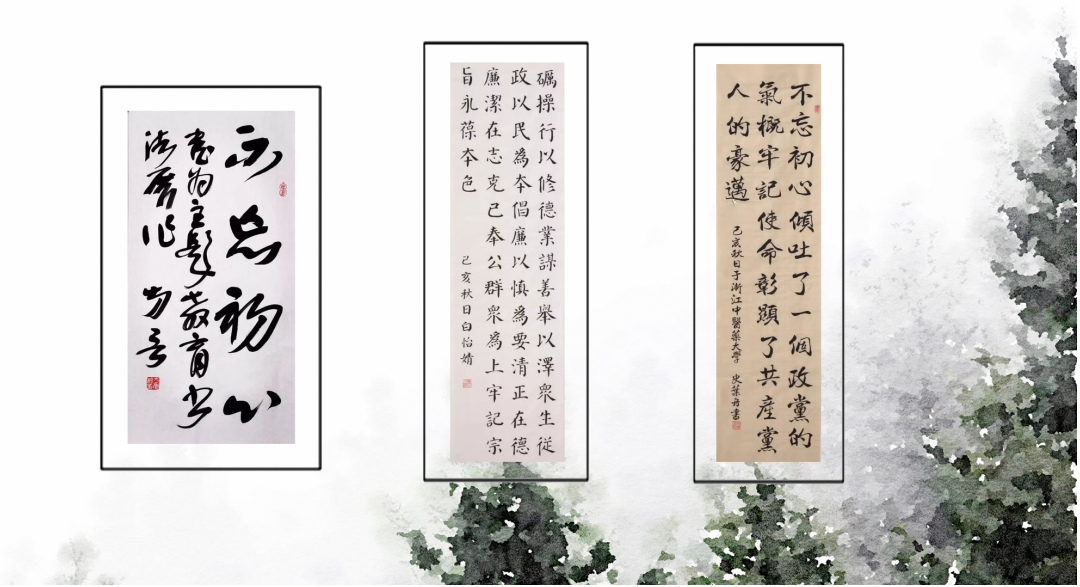 不忘初心
为主题教育书
法展作
礪操行以修德業謀善舉以澤衆生從
政以民為本倡廉以慎為要清正在德
廉潔在志克己奉公群衆為上牢記宗
旨永葆本色
己亥秋日白怡婧
不忘初心傾吐了一個政黨的
氣概牢記使命彰顯了共產黨
人的豪邁
己亥秋日于浙江中醫藥大學 史葉舟書